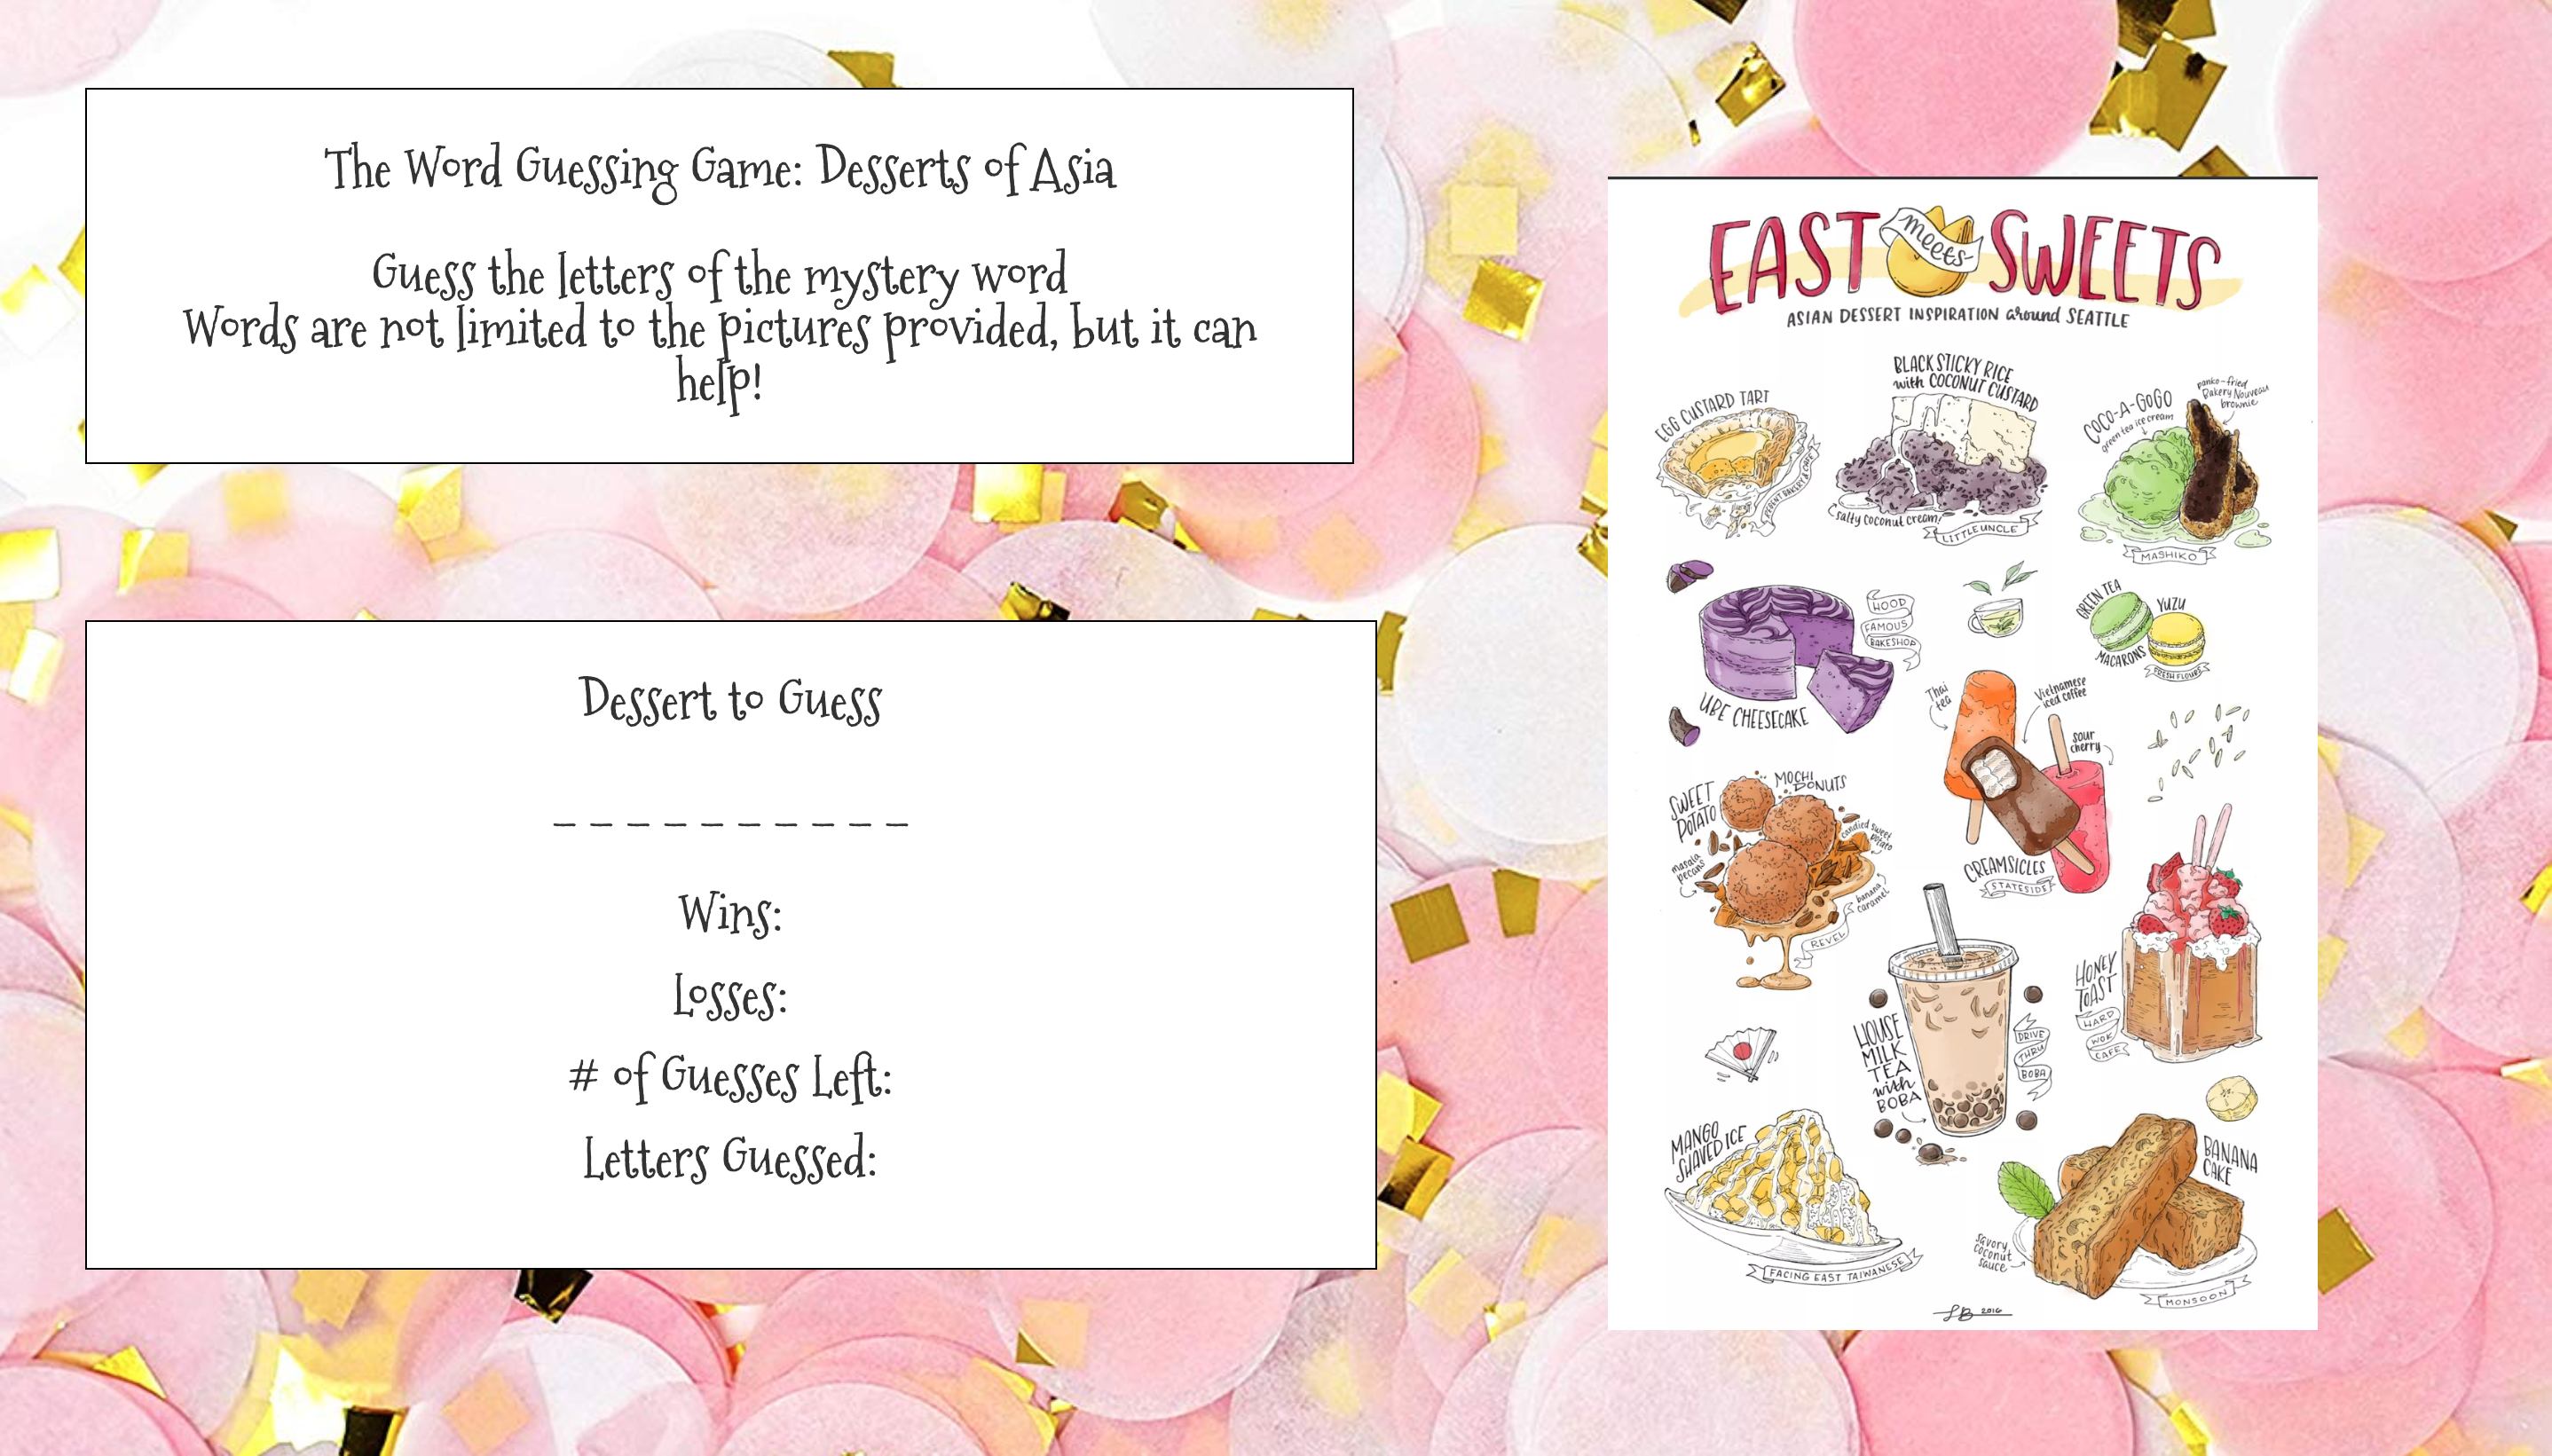 The Word Guessing Game: Desserts of Asia
Guess the letters of the mystery word
Words are not limited to the pictures provided, but it can
help!
Dessert to Guess
_ _ _ _ _ _ _ _ _ _
Wins:
Losses:
# of Guesses Left:
Letters Guessed:
EAST meets SWEETS
ASIAN DESSERT INSPIRATION around SEATTLE
EGG CUSTARD TART
BAKERY & CAFE
BLACK STICKY RICE
with COCONUT CUSTARD
salty coconut cream
LITTLE UNCLE
COCO-A-GOGO
green tea ice cream
panko-fried
Bakery Nouveau
brownie
MASHIKO
UBE CHEESECAKE
HOOD
FAMOUS
BAKESHOP
GREEN TEA
YUZU
MACARONS
FRESH FLOURS
Thai
tea
Vietnamese
iced coffee
sour
cherry
CREAMSICLES
STATESIDE
SWEET
POTATO
MOCHI
DONUTS
candied sweet
potato
masala
pecans
banana
caramel
REVEL
HOUSE
MILK
TEA
with
BOBA
DRIVE
THRU
BOBA
HONEY
TOAST
HARD
WOK
CAFE
MANGO
SHAVED ICE
FACING EAST TAIWANESE
BANANA
CAKE
savory
coconut
sauce
MONSOON
LB 2016